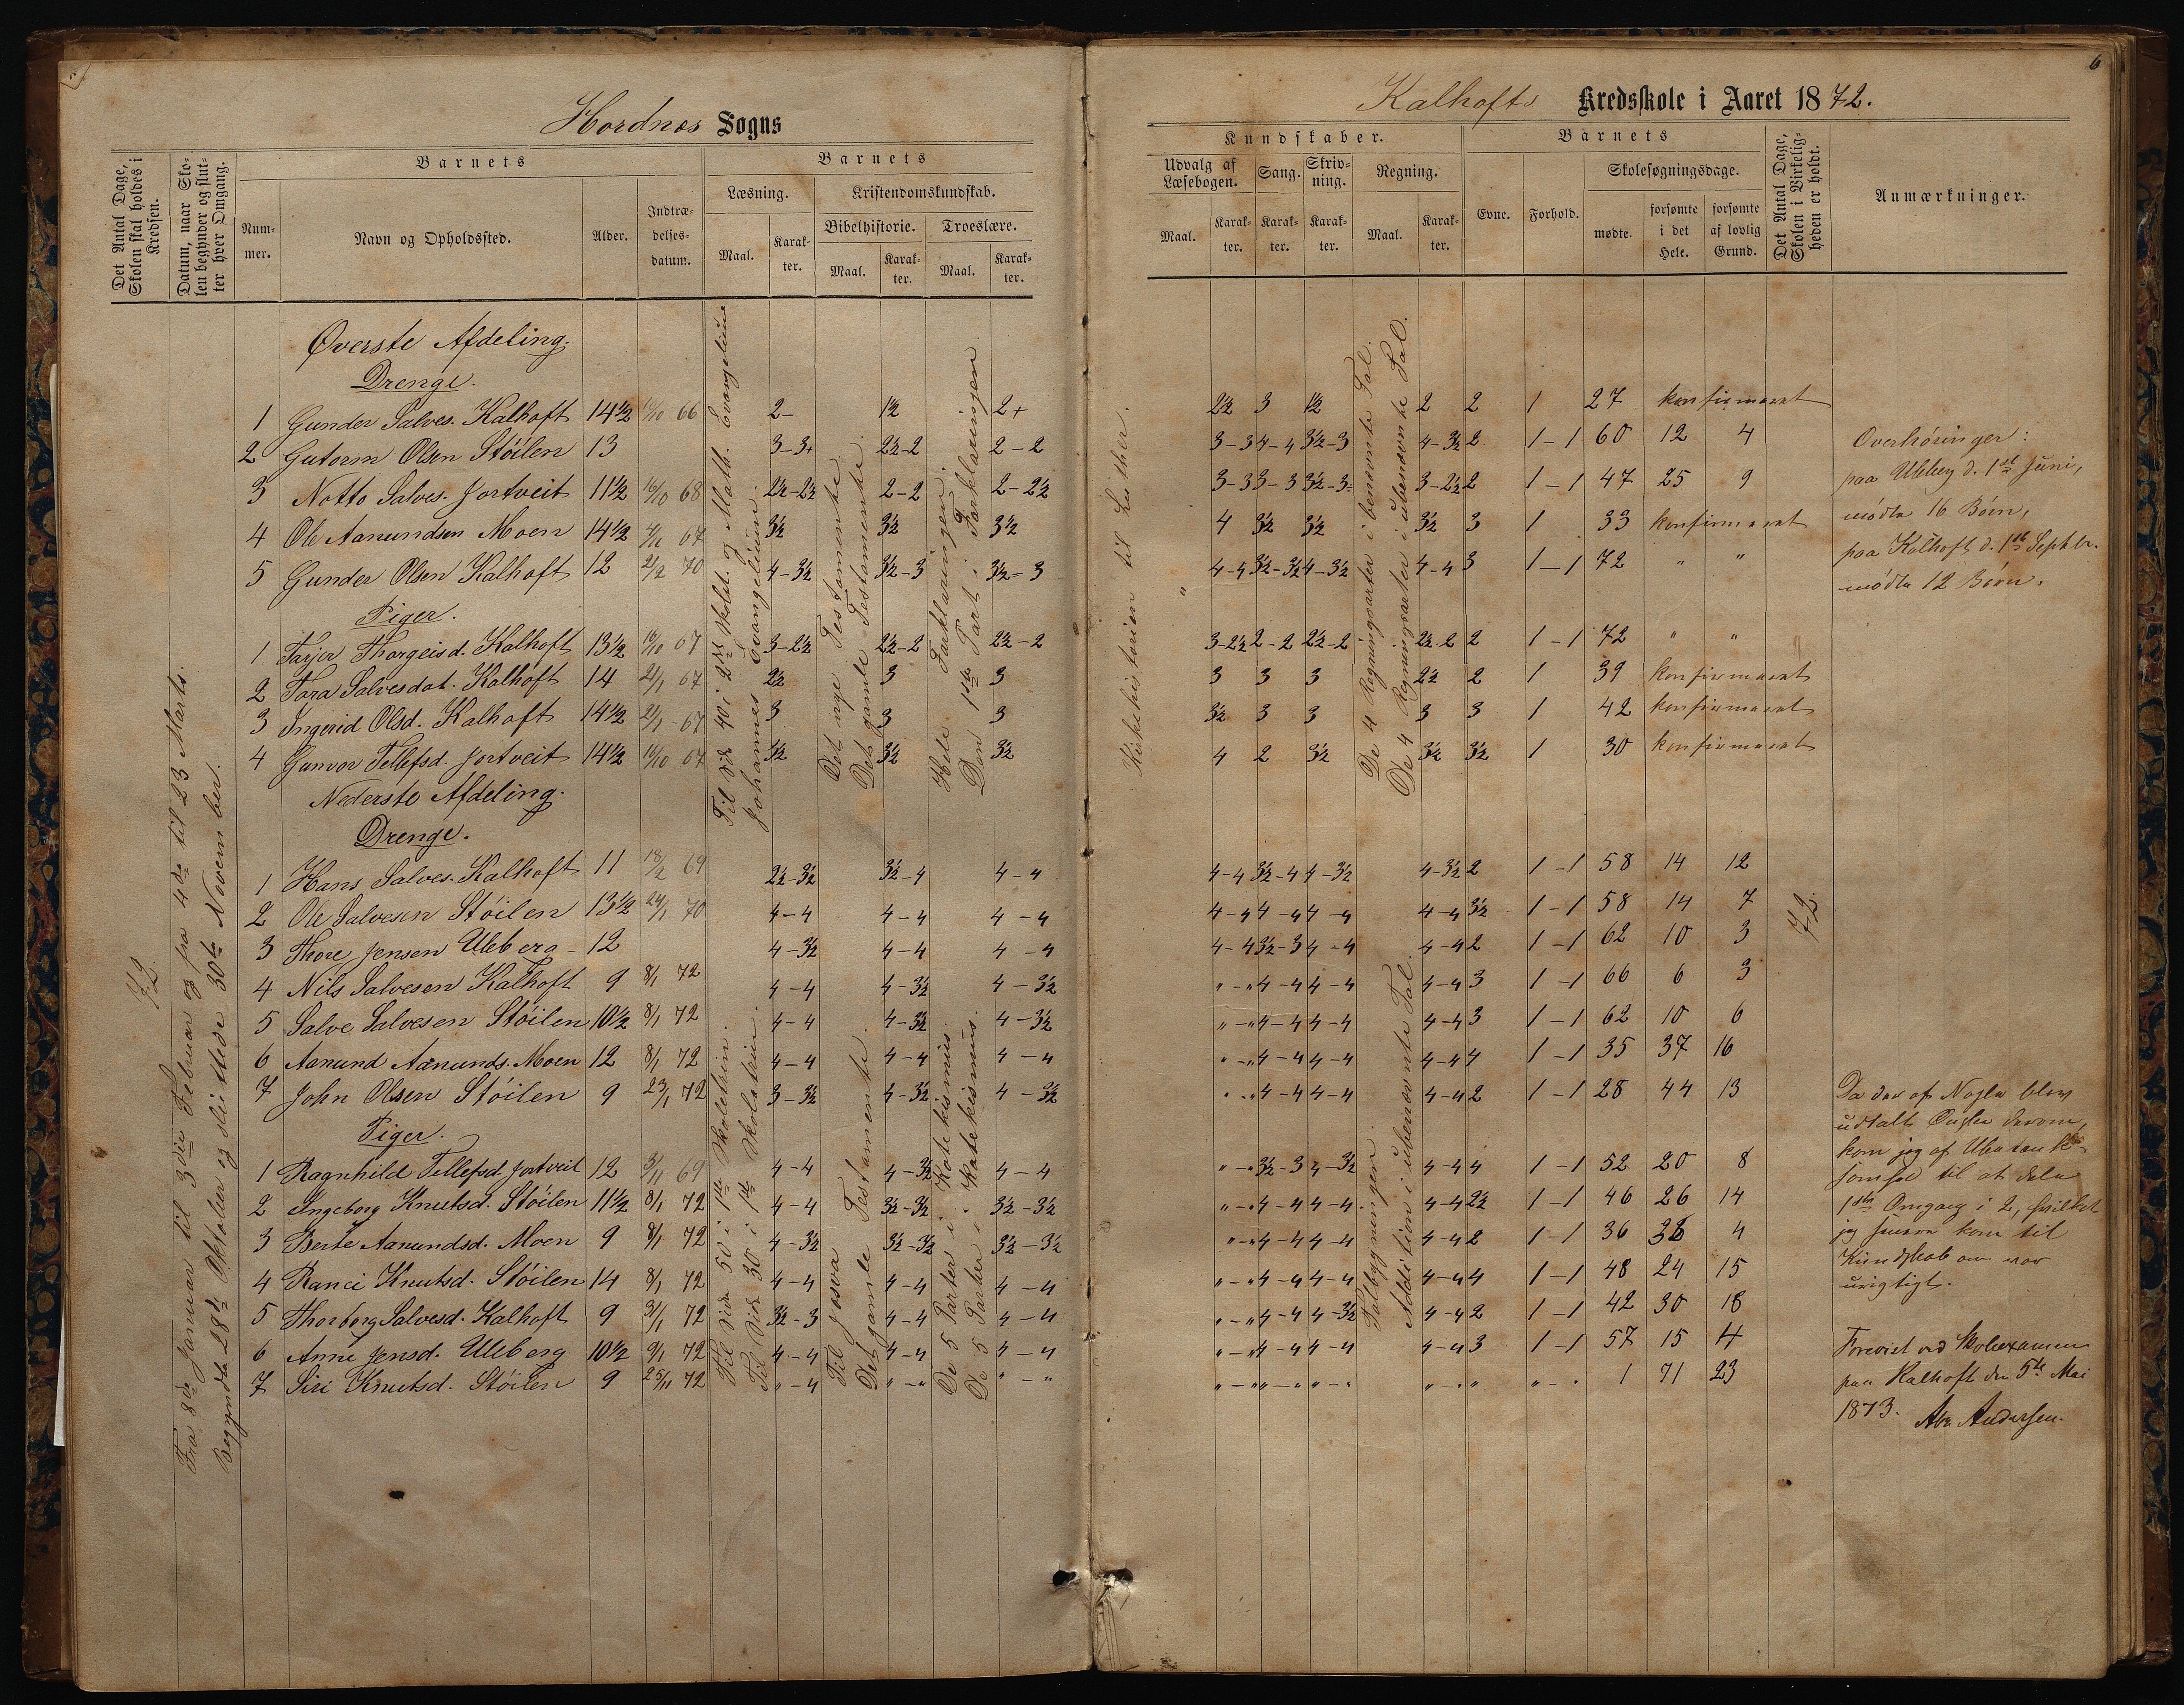 Hordnes Sogns
Det Antal Dage, Skolen skal holdes i Kredsen.
Datum, naar Skolen begynder og slutter hver Omgang.
Barnets
Nummer.
Navn og Opholdssted.
Alder.
Indtrædelsesdatum.
Barnets
Læsning.
Kristendomskundskab.
Maal.
Karakter.
Bibelhistorie.
Troeslære.
Maal.
Karakter.
Maal.
Karakter.
72.
Fra 8de Januar til 3die Februar og fra 4de til 23 Marts.
Begyndte 28de Oktober og sluttede 30te November.
Øverste Afdeling.
Drenge.
1 Gunder Salves. Kalhoft 14½ 66 2- 1½ 2+
2 Gutorm Olsen Stöilen 13 3-3+ 2½-2 2-2
3 Notto Salves. Jortveit 11½ 16/10 68 2½-2½ 2-2 2-2½
4 Ole Aanundsen Moen 14½ 67 3½ 3½ 3½
5 Gunder Olsen Kalhoft 12 21/2 70 4-3½ 3½-3 3½-3
Piger.
1 Tarjer Thorgeisd. Kalhoft 13½ 16/10 67 3-2½ 2½-2 2½-2
2 Tora Salvesdat. Kalhoft 14 21/1 67 2½ 3 3
3 Ingerid Olsd. Kalhoft 14½ 21/1 67 3 3 3
4 Gunvor Tellefsd. Jortveit 14½ 16/10 67 3½ 3½ 3½
Til Side 40 i 2det Skolet. og Math. Evangelium
Johannes Evangelium.
Det nye Testamente.
Det gamle Testamente.
Hele Forklaringen.
Den 1ste Part i Forklaringen
Nederste Afdeling.
Drenge.
1 Hans Salves. Kalhoft 11 18/2 69 2½-3½ 3½-4 4-4
2 Ole Salvesen Stöilen 13½ 24/1 70 4-4 4-4 4-4
3 Thore Jensen Uleberg 12 4-3½ 4-4 4-4
4 Nils Salvesen Kalhoft 9 8/1 72 4-4 4-3½ 4-3½
5 Salve Salvesen Stöilen 10½ 8/1 72 4-4 4-3½ 4-3½
6 Aanund Aanunds. Moen 12 8/1 72 4-4 4-4 4-4
7 John Olsen Stöilen 9 23/1 72 3-3½ 4-3½ 4-3½
Piger.
1 Ragnhild Tellefsd. Jortveit 12 3/11 69 4-4 4-3½ 4-4
2 Ingeborg Knutsd. Stöilen 11½ 8/1 72 4-4 3½-3½ 3½-3½
3 Berte Aanundsd. Moen 9 8/1 72 4-3½ 3½-3½ 3½-3½
4 Ranei Knutsd. Stöilen 14 8/1 72 4-4 4-4 4-4
5 Thorborg Salvesd. Kalhoft 9 31/1 72 3½-3 4-4 4-4
6 Anne Jensd. Uleberg 10½ 9/1 72 4-4 4-4 4-4
7 Siri Knutsd. Stöilen 9 25/11 72 „-4 „-„ „-„
Til Side 50 i 1ste Skoletrin.
Til Side 30 i 1ste Skoletrin.
Til Josva
Det gamle Testamente.
De 5 Parter i Katekismus.
De 5 Parter i Katekismus.
6
Kalhofts Kredsskole i Aaret 1872.
Kundskaber.
Udvalg af Læsebogen.
Sang.
Skrivning.
Regning.
Maal.
Karakter.
Karakter.
Karakter.
Maal.
Karakter.
Barnets
Evne.
Forhold.
Skolesøgningsdage.
mødte.
forsømte i det Hele.
forsømte af lovlig Grund.
Det Antal Dage, Skolen i Virkeligheden er holdt.
Anmærkninger.
Kirkehistorien til Luther.
„
De 4 Regningsarter i benevnte Tal.
De 4 Regningsarter i ubenevnte Tal.
2½ 3 1½ 2 2 1 27 konfirmeret
3-3 4-4 3½-3 4-3½ 2 1-1 60 12 4
3-3 3-3 3½-3 3-2½ 2 1-1 47 25 9
4 3½ 3½ 3½ 3 1 33 konfirmeret
4-4 3½-3½ 4-3½ 4-4 3 1-1 72 „ „
3-2½ 2-2 2½-2 2½-2 2 1-1 72 „ „
3 3 3 2½ 2 1 39 konfirmeret
3½ 3 3 3 3 1 42 konfirmeret
4 2 3½ 3½ 3½ 1 30 konfirmeret
4-4 3½-4 4-3½ 4-3½ 2 1-1 58 14 12
4-4 4-4 4-4 4-4 3½ 1-1 58 14 7
4-4 3½-3 4-4 4-4 2 1-1 62 10 3
„-„ 4-4 4-4 4-4 3 1-1 66 6 3
„-„ 4-4 4-4 4-4 3 1-1 62 10 6
„-„ 4-4 4-4 4-4 4 1-1 35 37 16
„-„ 4-4 4-4 4-4 2 1-1 28 44 13
„-„ 3½-3 4-3½ 4-4 4 1-1 52 20 8
„-„ 4-4 4-4 4-4 2½ 1-1 46 26 14
„-„ 4-4 4-4 4-4 2 1-1 36 36 4
„-„ 4-4 4-4 4-4 4 1-1 48 24 15
„-„ 4-4 4-3½ 4-4 2 1-1 42 30 18
„-„ 4-4 4-4 4-4 3 1-1 57 15 4
„-„ „-„ „-„ „-„ „ „-„ 1 71 23
Talbygningen.
Addition i ubenevnte Tal.
72.
Overhöringer:
paa Uleberg d. 1ste Juni,
mödte 16 Börn,
paa Kalhoft d. 1ste Septbr.
mödte 12 Börn.
Da der af Nogle blev
udtalt Önske derom,
kom jeg af
til at dele
1ste Omgang i 2, hvilket
jeg senere kom til
Kundskab om var
urigtigt.
Forevist ved Skoleexamen
paa Kalhoft den 5te Mai
1873. Andersen.